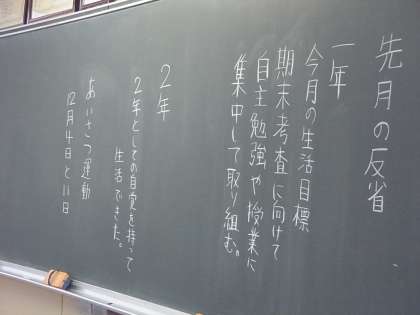 先月の反省
一年
今月の生活目標
期末考査に向けて
自主勉強や授業に
集中して取り組む。
2年
2年としての自覚を持って
生活できた。
あいさつ運動
12月4日と11日